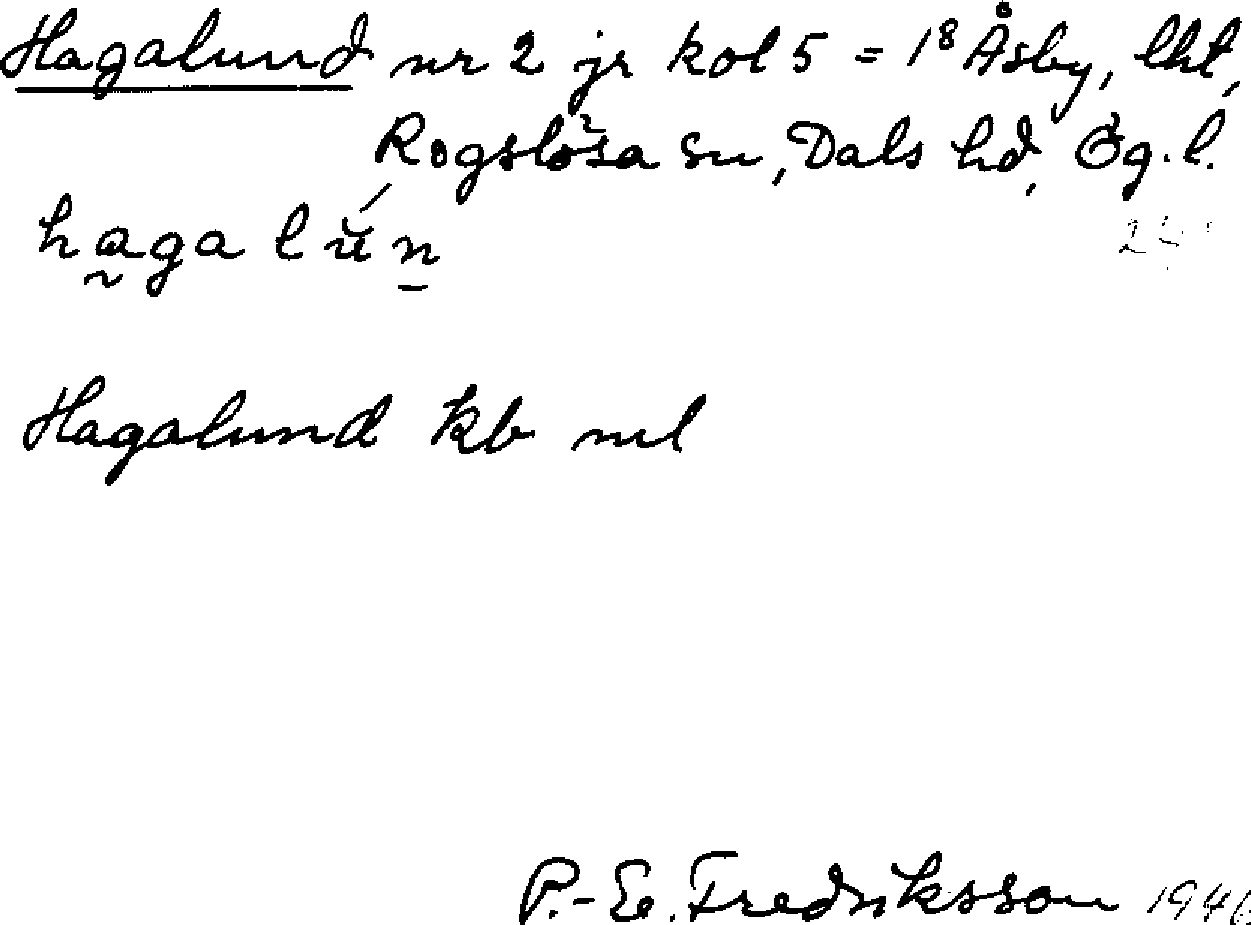 Hagalund nr 2 jr kol 5 = 1⁸ Åsby, lht,
Rogslösa sn, Dals hd, Ög. l.
hagalun
Hagalund kb ml
P.-E. Fredriksson 1946